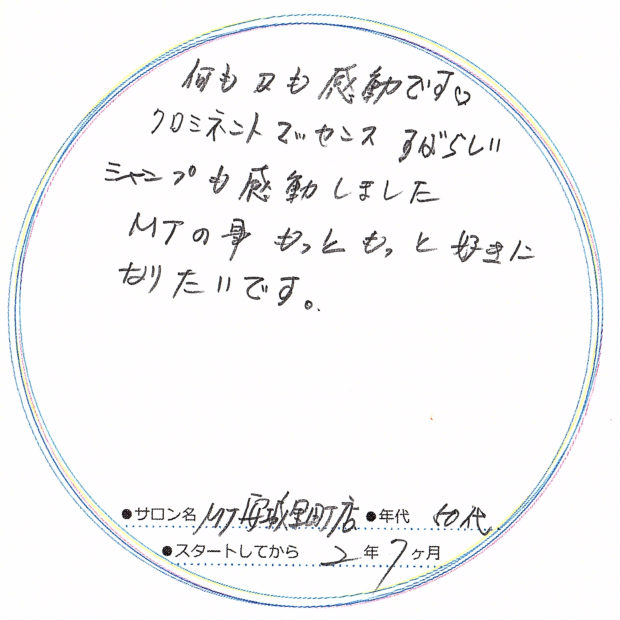 何も又も感動です♡
クロミネント エッセンス すばらしい
シャンプも感動しました
MTの事 もっともっと好きに
なりたいです。
●サロン名 MT安城里町店 ●年代 50代
●スタートしてから 2年7ヶ月